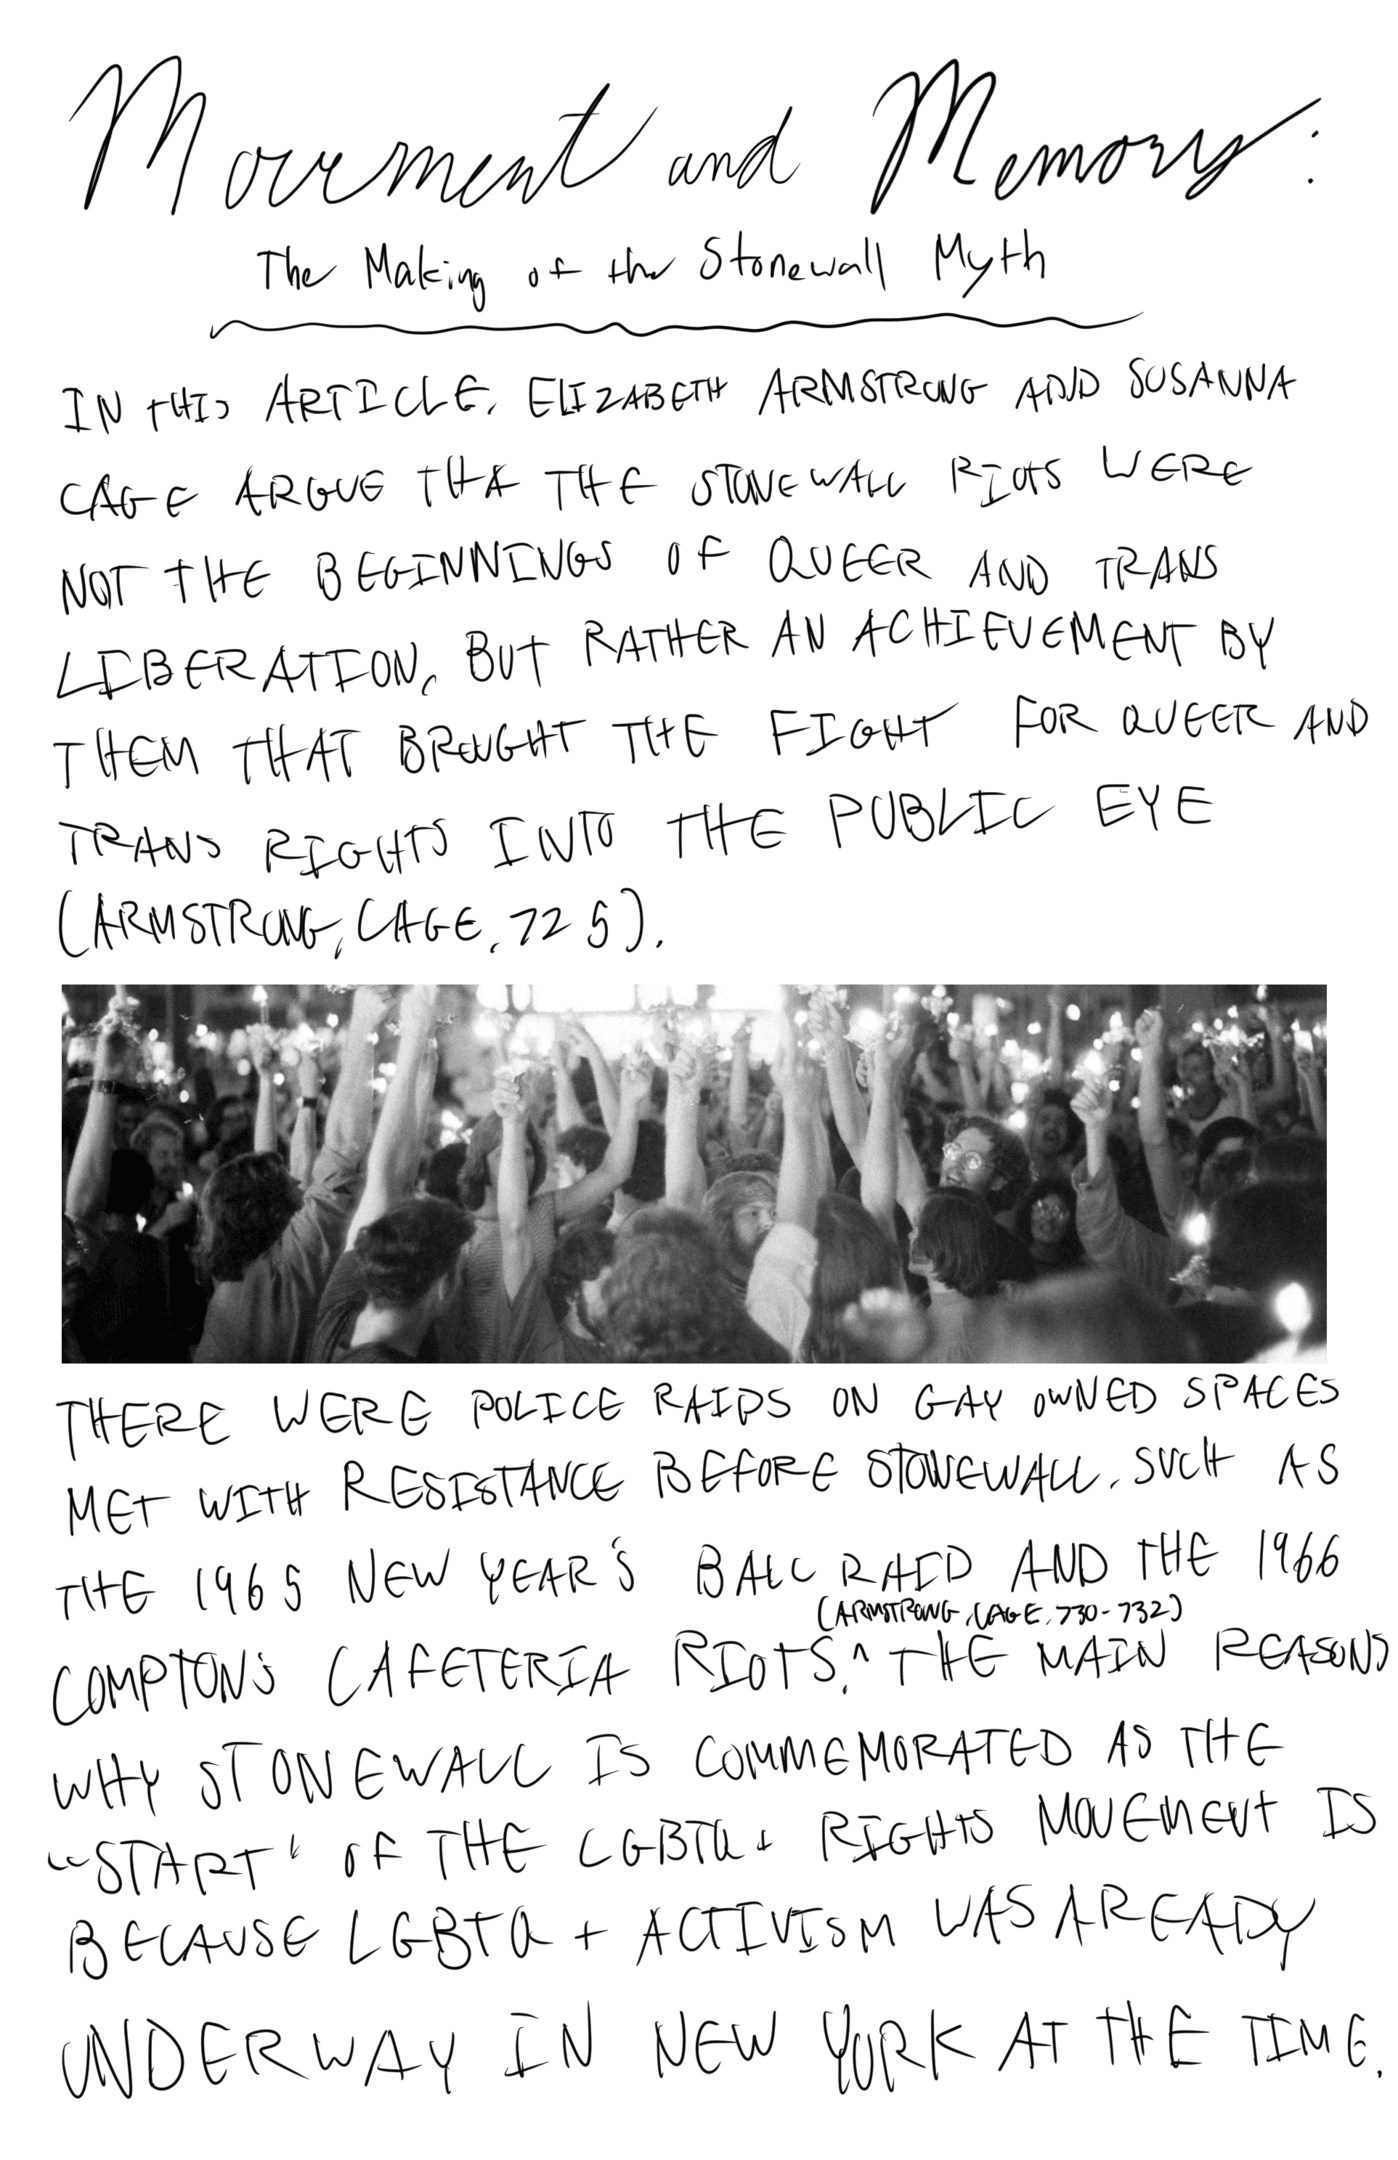 Movement and Memory:
The Making of the Stonewall Myth
IN THIS ARTICLE, ELIZABETH ARMSTRONG AND SUSANNA
CAGE ARGUE THA THE STONEWALL RIOTS WERE
NOT THE BEGINNINGS OF QUEER AND TRANS
LIBERATION, BUT RATHER AN ACHIEVEMENT BY
THEM THAT BROUGHT THE FIGHT FOR QUEER AND
TRANS RIGHTS INTO THE PUBLIC EYE
(ARMSTRONG, CAGE, 725).
THERE WERE POLICE RAIDS ON GAY OWNED SPACES
MET WITH RESISTANCE BEFORE STONEWALL, SUCH AS
THE 1965 NEW YEAR'S BALL RAID AND THE 1966
(ARMSTRONG, CAGE, 730-732)
COMPTON'S CAFETERIA RIOTS.^ THE MAIN REASONS
WHY STONEWALL IS COMMEMORATED AS THE
"START" OF THE LGBTQ+ RIGHTS MOVEMENT IS
BECAUSE LGBTQ+ ACTIVISM WAS AREADY
UNDERWAY IN NEW YORK AT THE TIME.